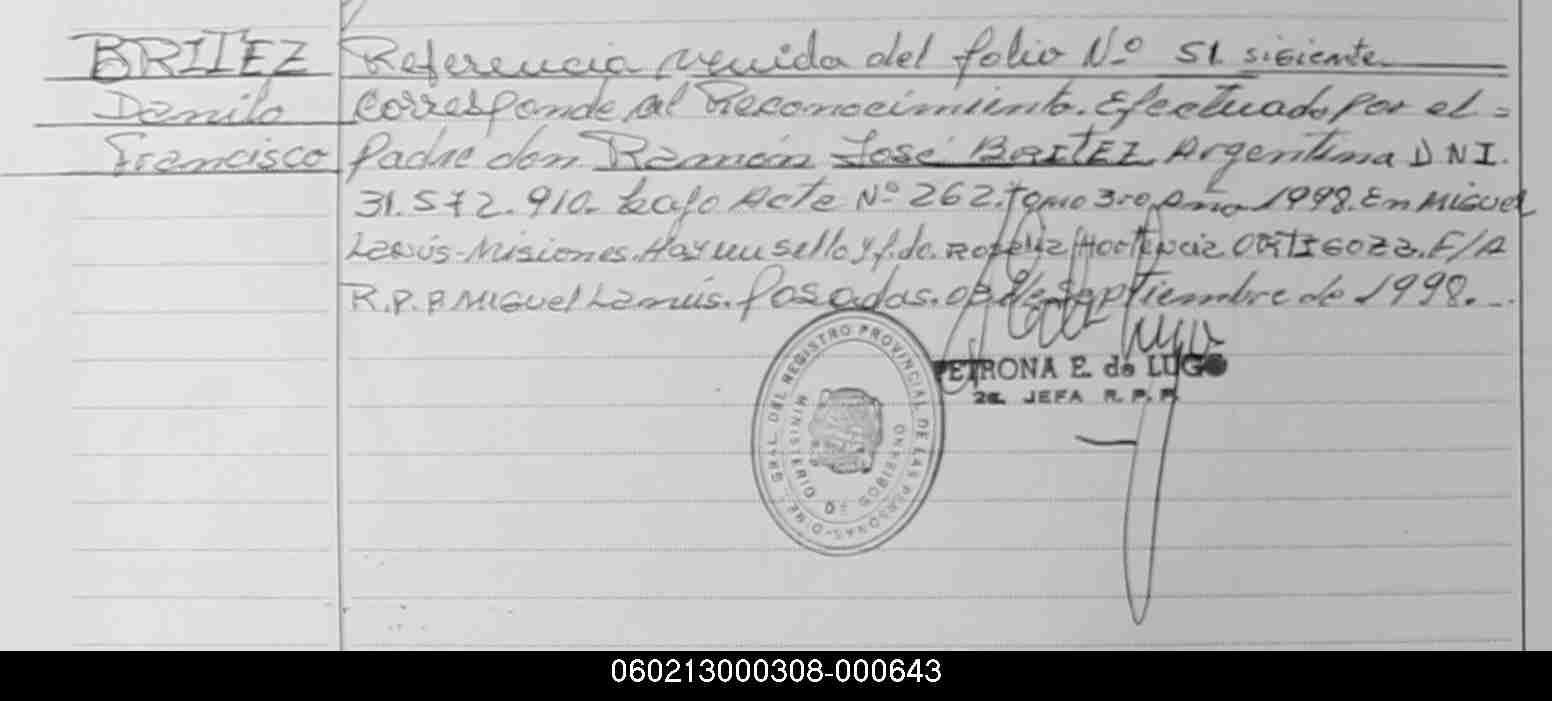 BRITEZ
Danilo
Francisco
Referencia venida del folio Nº 51. siGiente
Corresponde al Reconocimiento. Efectuado por el =
Padre don Ramón José BRITEZ Argentina D N I.
31.572.910. bajo Acta Nº 262. Tomo 3ro Año 1998. En MiGuel
Lanús-Misiones. Hay un sello y f.do. Hortencia ORTIGOZA. E/A
R.P.P. MiGuel Lanús. Posadas. de Septiembre de 1998.
PETRONA E. de LUGO
2a. JEFA R. P. P.
GRAL. DEL REGISTRO PROVINCIAL DE LAS PERSONAS
MINISTERIO DE GOBIERNO
060213000308-000643